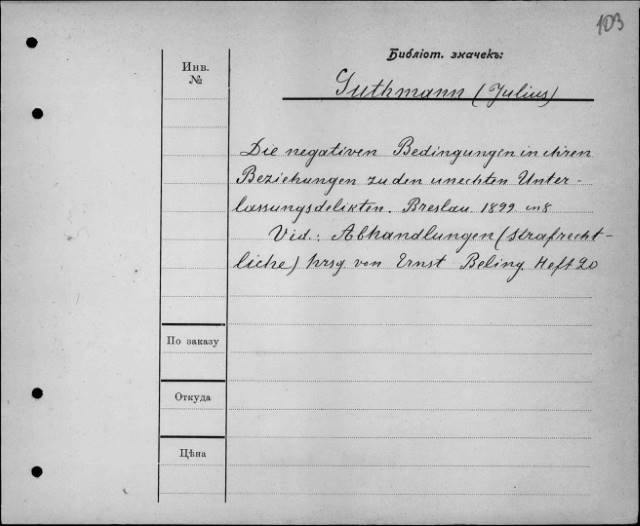 103
Библіот. значекъ:
Инв.
№
Guthmann (Julius)
Die negativen Bedingungen in ihren
Beziehungen zu den unechten Unter-
lassungsdelikten. Breslau. 1899 in 8
Vid.: Abhandlungen (strafrecht-
liche) hrsg. von Ernst Beling. Heft 20
По заказу
Откуда
Цѣна